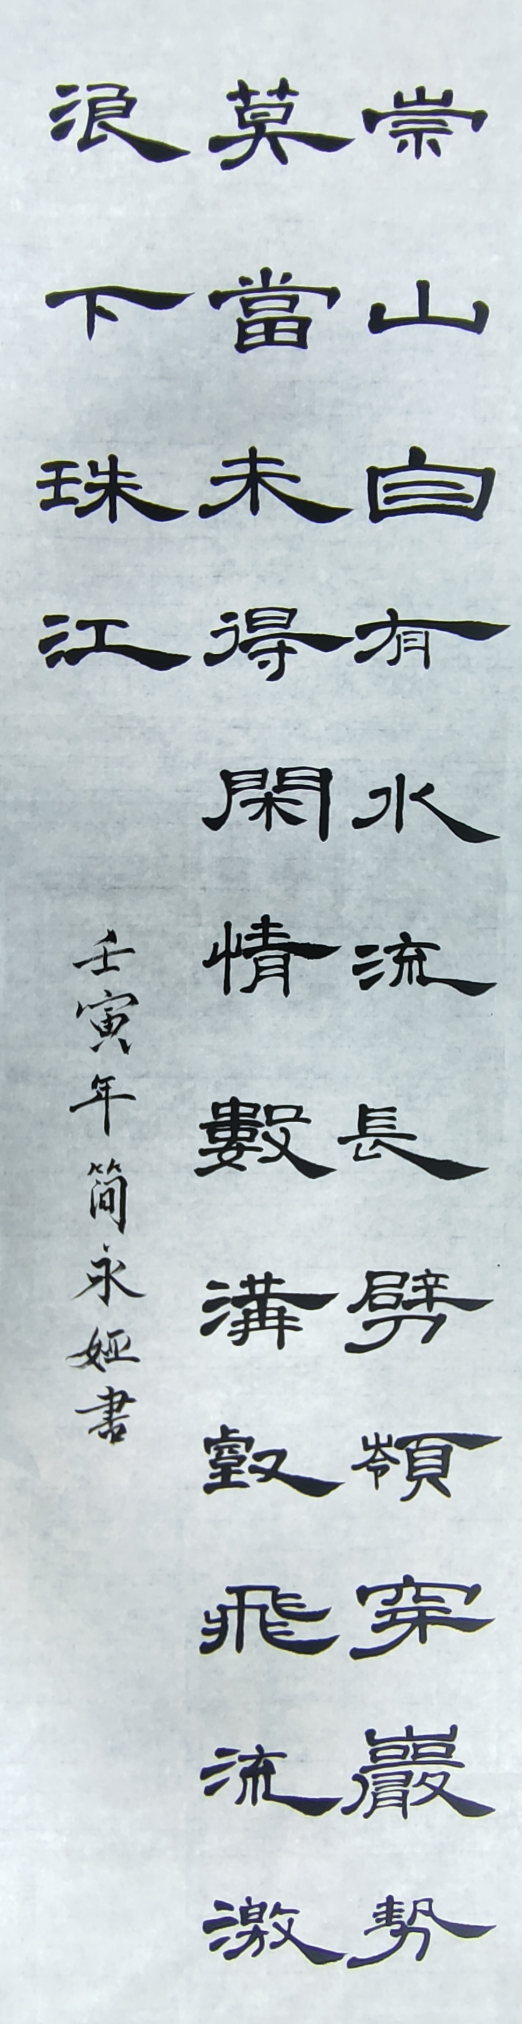 崇山自有水流長劈嶺穿巖勢
莫當未得閑情數溝壑飛流激
浪下珠江
壬寅年简永娅書